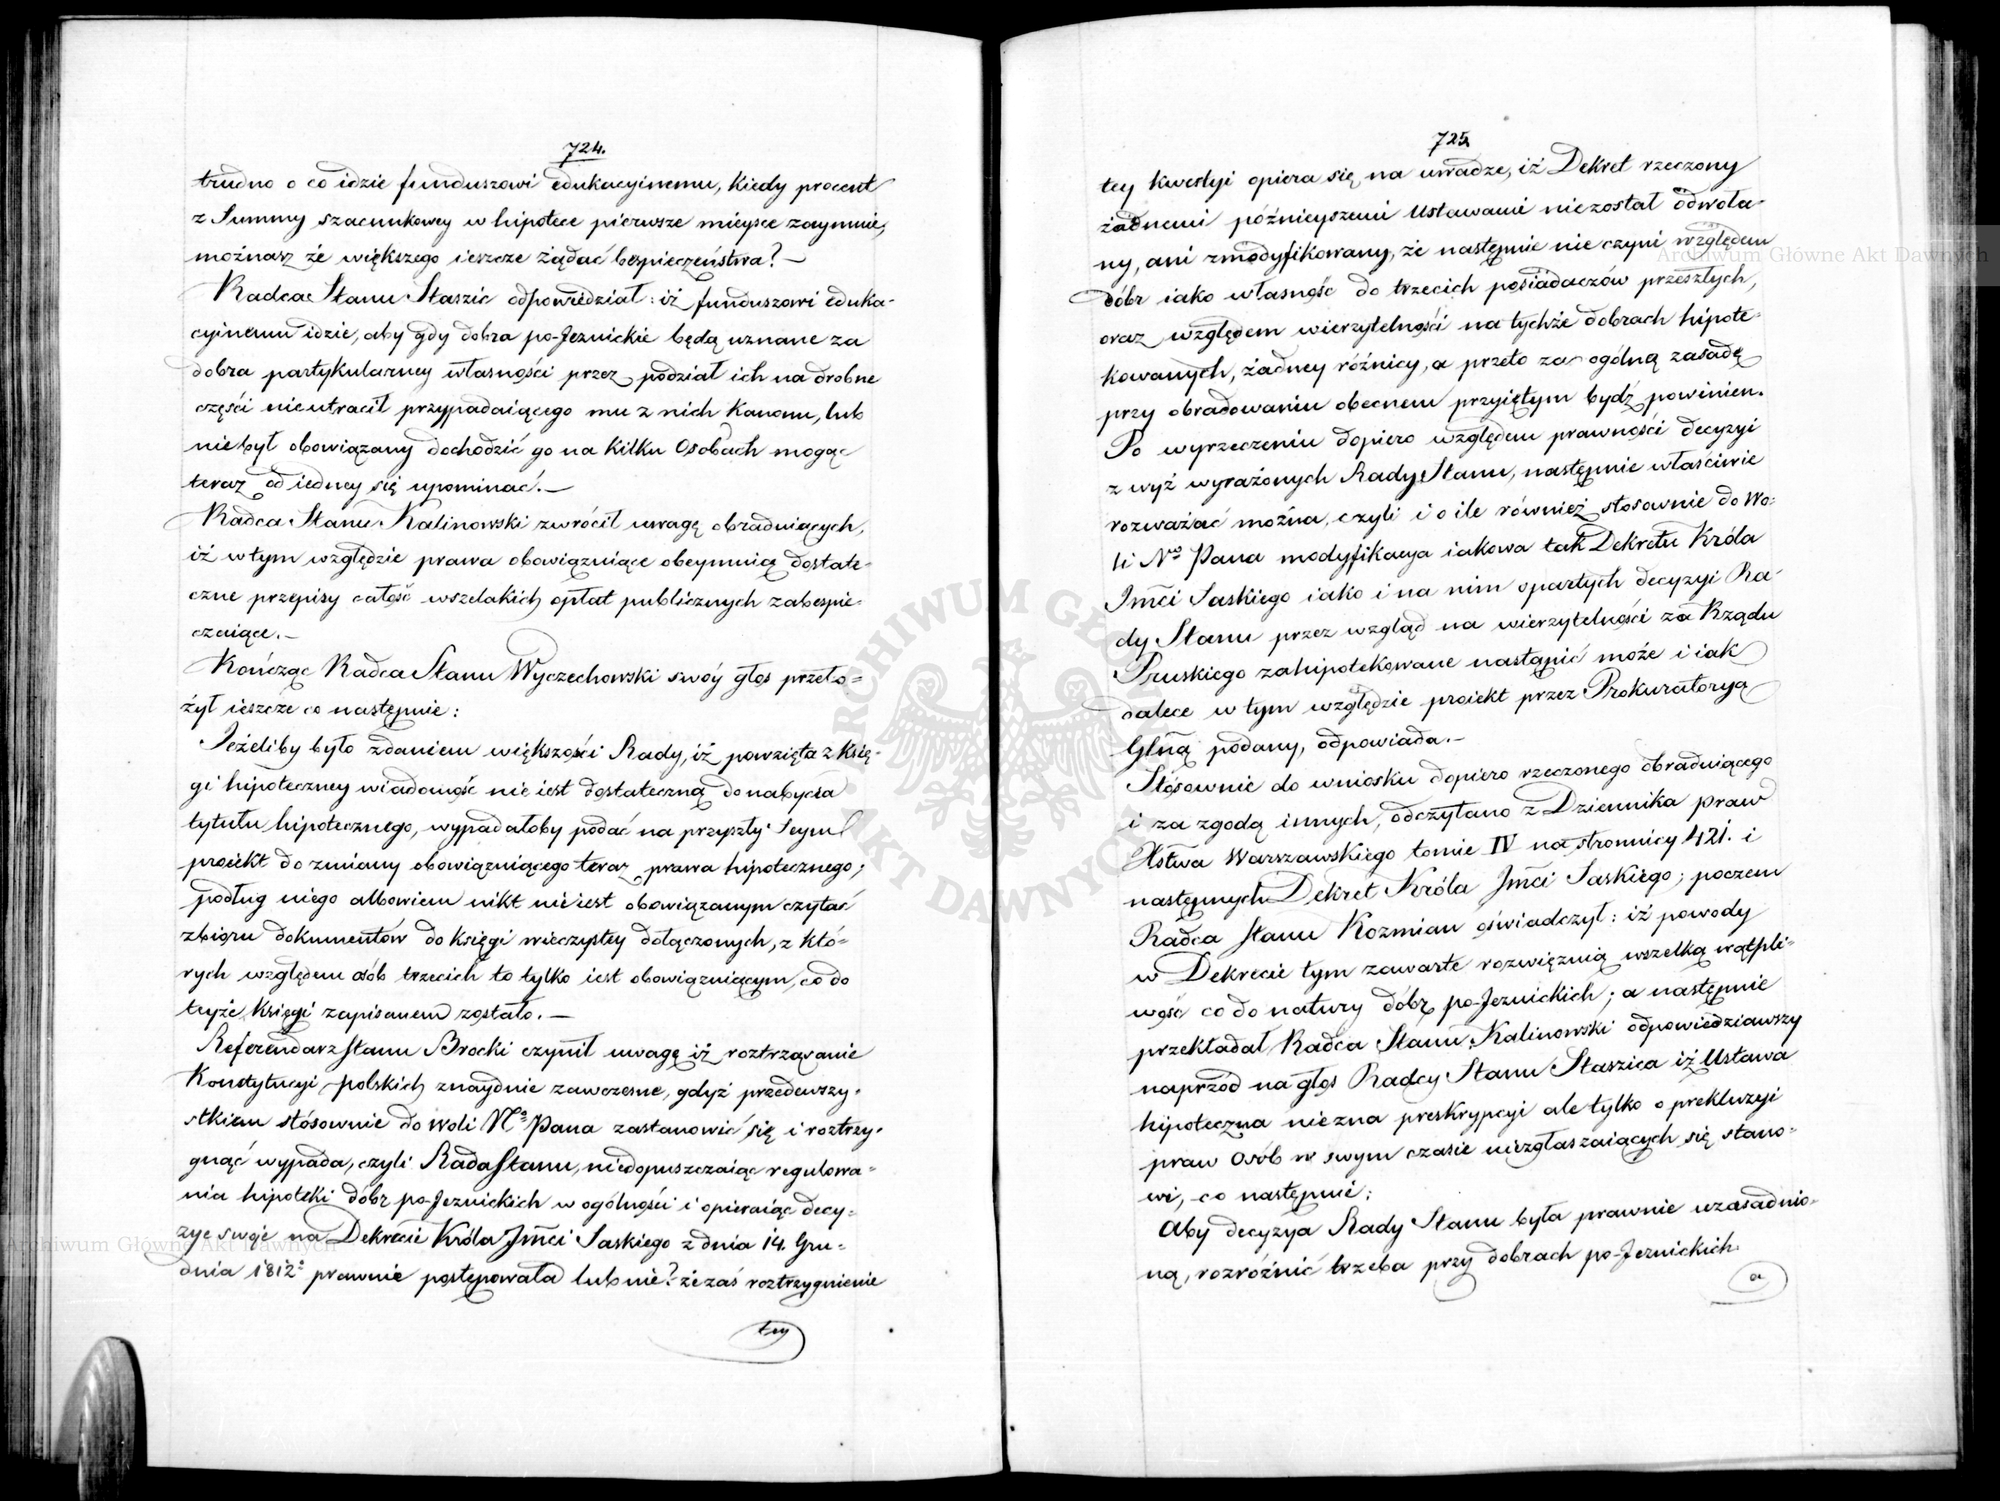 724.
trudno o co idzie funduszowi edukacyinemu, kiedy procent
z Summy szacunkowey w hipotece pierwsze mieysce zaymuie,
możnasz że większego ieszcze żądać bespieczeństwa? —
Radca Stanu Staszic odpowiedział: iż funduszowi eduka-
cyinemu idzie, aby gdy dobra po-Jezuickie będą uznane za
dobra partykularney własności przez podział ich na drobne
części nieutracił przypadaiącego mu z nich Kanonu, lub
niebył obowiązany dochodzić go na kilku Osobach mogąc
teraz od iedney się upominać. —
Radca Stanu Kalinowski zwrócił uwagę obraduiących,
iż w tym względzie prawa obowiązuiące obeymuią dostate-
czne przepisy całość wszelakich opłat publicznych zabespie-
czaiące. —
Kończąc Radca Stanu Wyczechowski swóy głos przeło-
żył ieszcze co następuie:
Jeżeliby było zdaniem większości Rady, iż powzięta z Księ-
gi hipoteczney wiadomość nie iest dostateczną do nabycia
tytułu hipotecznego, wypadałoby podać na przyszły Seym
proiekt do zmiany obowiązuiącego teraz prawa hipotecznego;
podług niego albowiem nikt nie iest obowiązanym czytać
zbioru dokumentów do księgi wieczystey dołączonych, z któ-
rych względem osób trzecich to tylko iest obowiązuiącym, co do
teyże Księgi zapisanem zostało. —
Referendarz Stanu Brocki czynił uwagę iż roztrząsanie
Konstytucyi polskich znayduie zawczesne, gdyż przedewszy-
stkiem stósownie do woli Nco Pana zastanowić się i roztrzy-
gnąć wypada, czyli Rada Stanu, niedopuszczaiąc regulowa-
nia hipoteki dóbr po-Jezuickich w ogólności i opieraiąc decy-
zye swoje na Dekrecie Króla Jmci Saskiego z dnia 14. Gru-
dnia 1812o prawnie postępowała lub nie? że zaś roztrzygnienie
tey
725
tey kwestyi opiera się na uwadze, iż Dekret rzeczony
żadnemi późnieyszemi Ustawami niezostał odwoła-
ny, ani zmodyfikowany, że następnie nie czyni względem
dóbr iako własność do trzecich posiadaczów przeszłych,
oraz względem wierzytelności na tychże dobrach hipote-
kowanych, żadney różnicy, a przeto za ogólną zasadę
przy obradowaniu obecnem przyiętym bydź powinien.
Po wyrzeczeniu dopiero względem prawności decyzyi
z wyż wyrażonych Rady Stanu, następnie właściwie
rozważać można, czyli i o ile również stosownie do Wo-
li Nco Pana modyfikacya iakowa tak Dekretu Króla
Jmci Saskiego iako i na nim opartych decyzyi Ra-
dy Stanu przez wzgląd na wierzytelności za Rządu
Pruskiego zahipotekowane nastąpić może i iak
dalece w tym względzie proiekt przez Prokuratoryą
Glną podany, odpowiada. —
Stósownie do wniosku dopiero rzeczonego obraduiącego
i za zgodą innych, odczytano z Dziennika praw
Xstwa Warszawskiego tomie IV na stronnicy 421. i
następnych Dekret Króla Jmci Saskiego; poczem
Radca Stanu Kozmian oświadczył: iż powody
w Dekrecie tym zawarte rozwięzuią wszelką wątpli-
wość co do natury dóbr po-Jezuickich; a następnie
przekładał Radca Stanu Kalinowski odpowiedziawszy
naprzód na głos Radcy Stanu Staszica iż Ustawa
hipoteczna niezna preskrypcyi ale tylko o prekluzyi
praw Osób w swym czasie niezgłaszaiących się stano-
wi, co następuie:
Aby decyzya Rady Stanu była prawnie uzasadnio-
ną, rozróżnić trzeba przy dobrach po-Jezuickich
a
Archiwum Główne Akt Dawnych
Archiwum Główne Akt Dawnych
ARCHIWUM GŁÓWNE AKT DAWNYCH